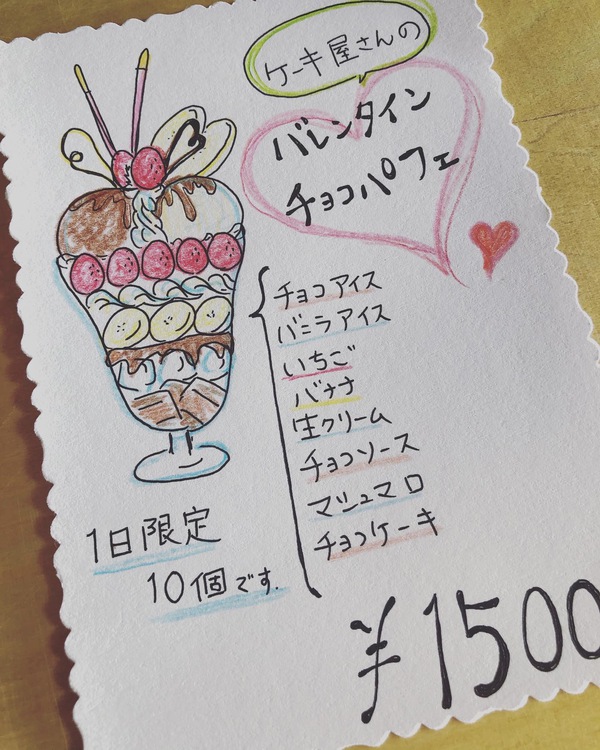 ケーキ屋さんの
バレンタイン
チョコパフェ
チョコアイス
バニラアイス
いちご
バナナ
生クリーム
チョコソース
マシュマロ
チョコケーキ
1日限定
10個です.
¥1500